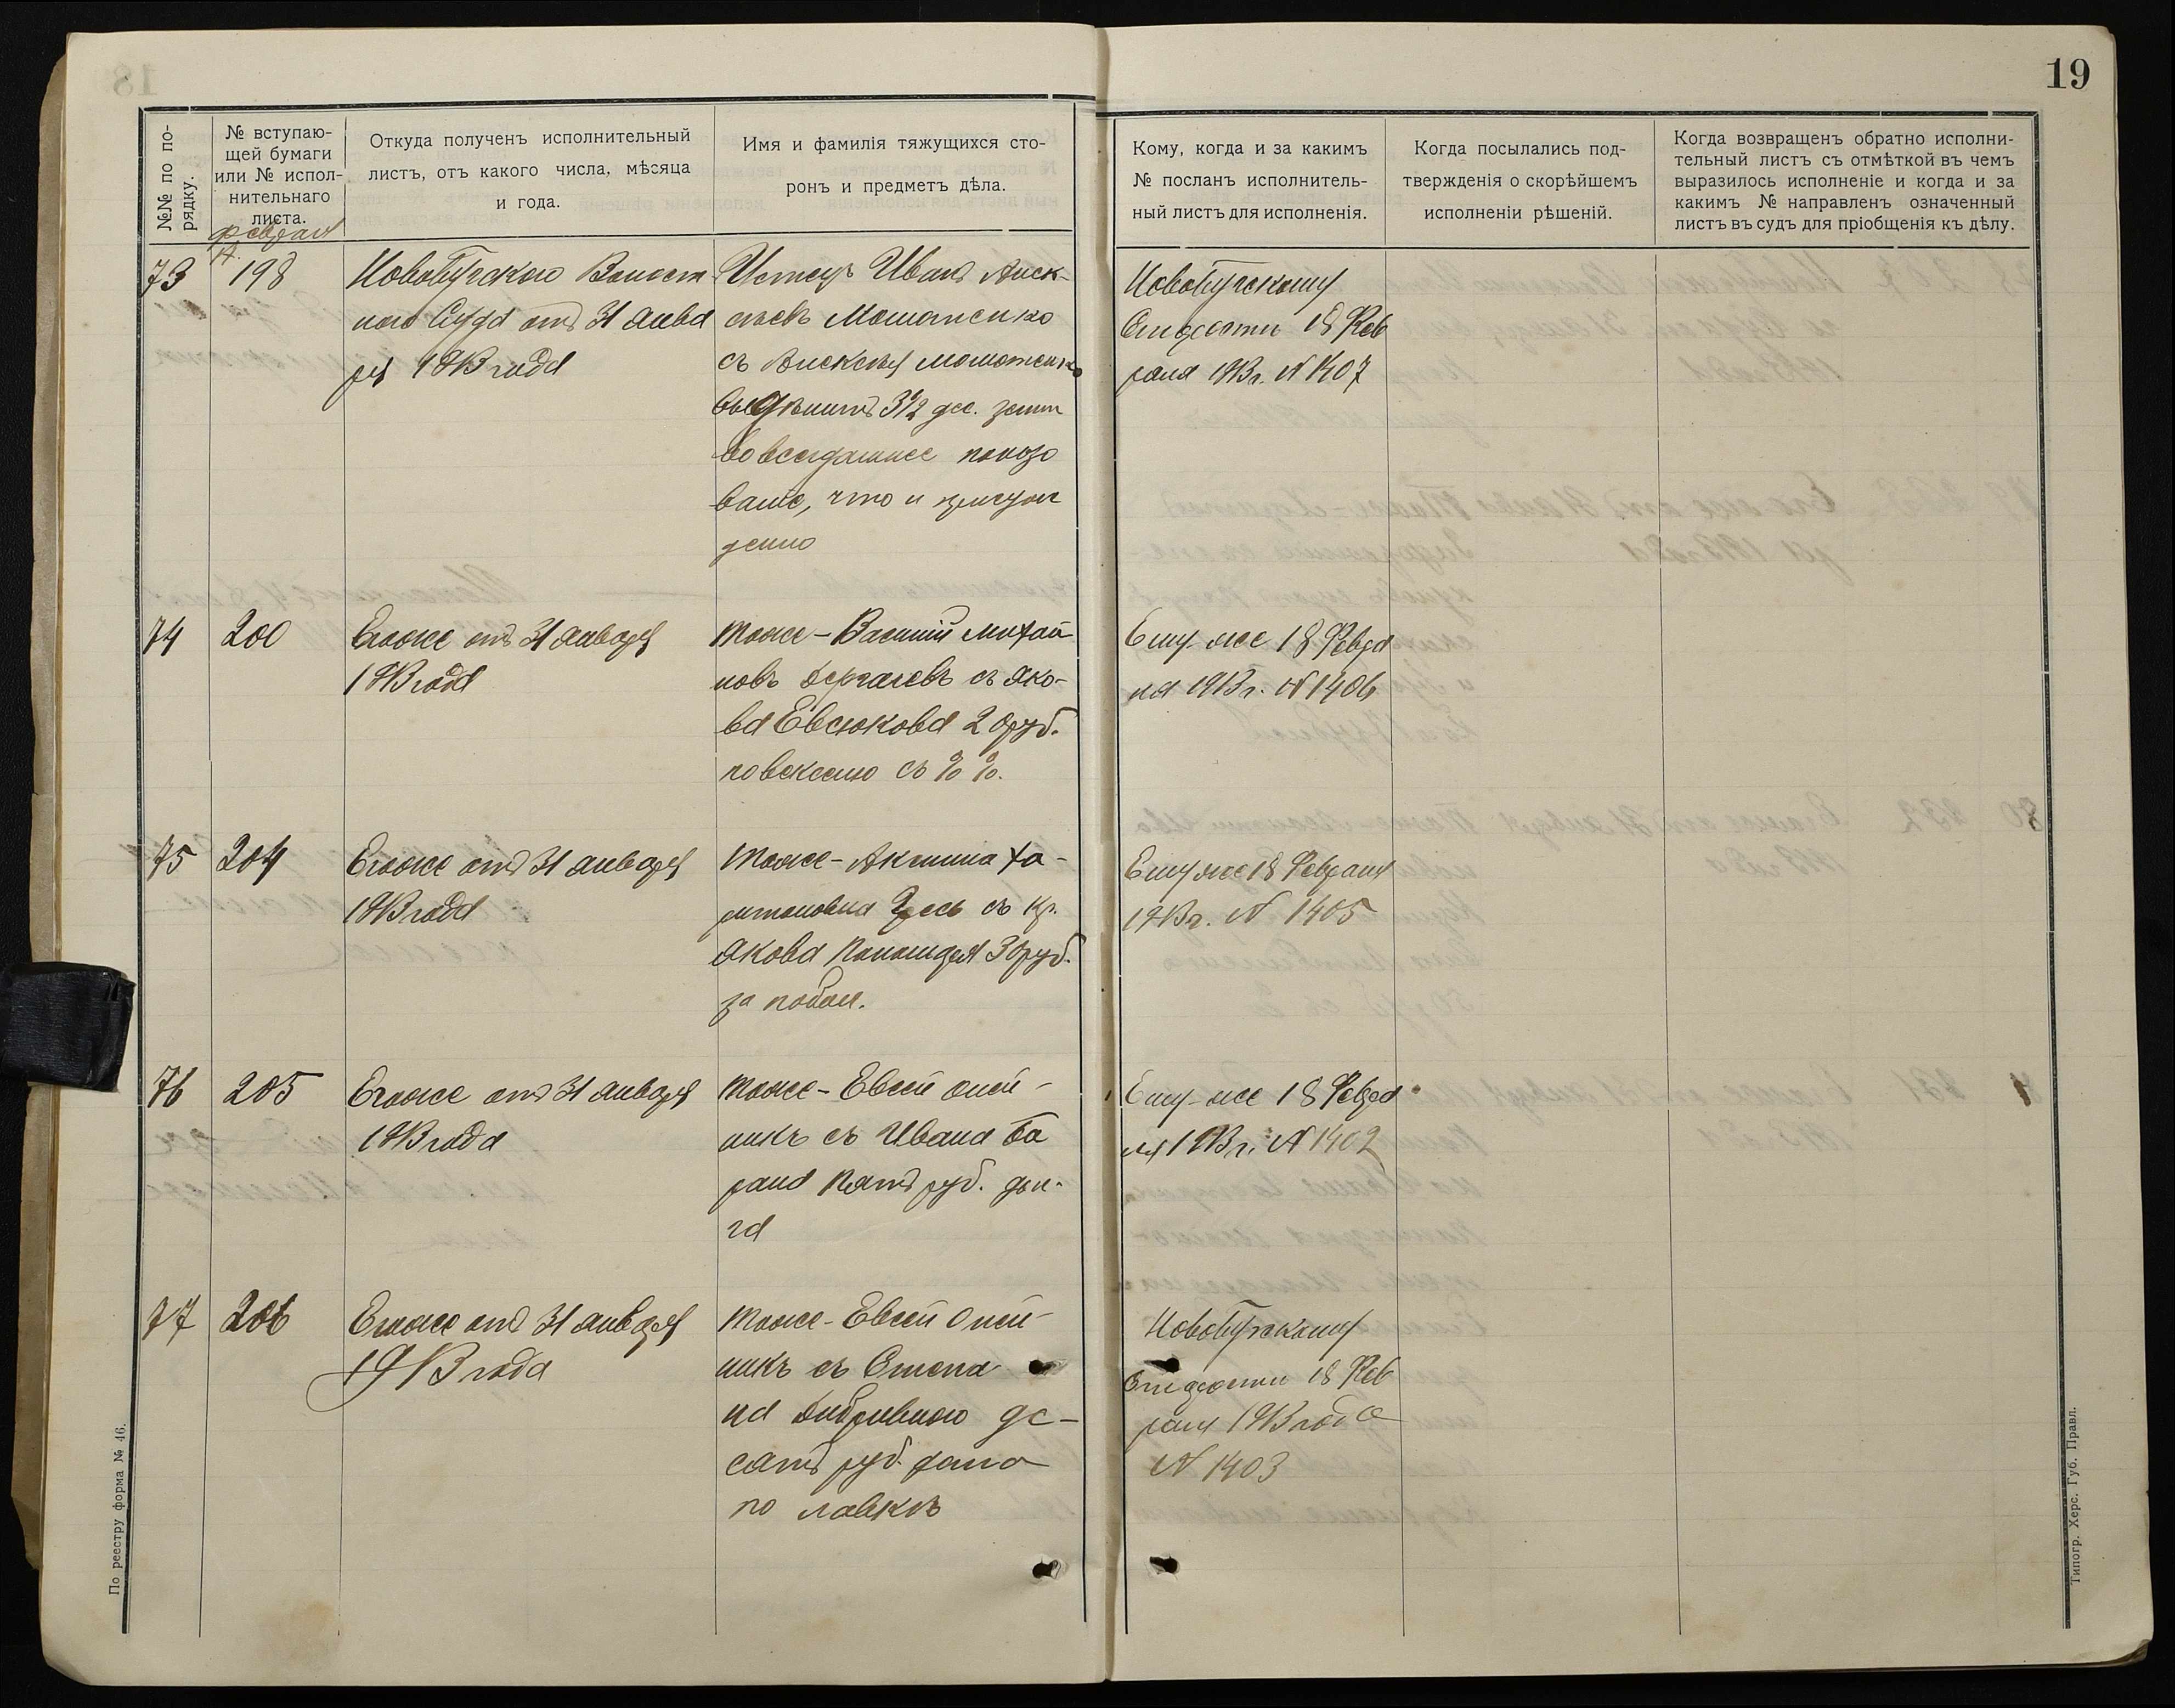 19
№№ по по-
рядку.
№ вступаю-
щей бумаги
или № испол-
нительнаго
листа.
Откуда полученъ исполнительный
листъ, отъ какого числа, мѣсяца
и года.
Имя и фамилія тяжущихся сто-
ронъ и предметъ дѣла.
Кому, когда и за какимъ
№ посланъ исполнитель-
ный листъ для исполненія.
Когда посылались под-
твержденія о скорѣйшемъ
исполненіи рѣшеній.
Когда возвращенъ обратно исполни-
тельный листъ съ отмѣткой въ чемъ
выразилось исполненіе и когда и за
какимъ № направленъ означенный
листъ въ судъ для пріобщенія къ дѣлу.
Февраля
73
198
Новобугскаго Волост
наго Суда отъ 31 Янва
ря 1913 года
Истецъ Иванъ Алек
съ
3½ дес. земли
во всегдашнее пользо
ваніе, что и присуж
дено
Новобугскому
18 Фев
раля 1913 г. N 1407
74
200
Егоже отъ 31 Января
1913 года
Тоже - Василій Михай
ловъ Дергачевъ съ Яко-
ва Евсюкова 20 руб.
по векселю съ % %.
Ему-же 18 Февра
ля 1913 г. N 1406
75
204
Егоже отъ 31 Января
1913 года
Тоже - Акилина Ха-
ритоновна съ кр.
Якова 30 руб.
за побои.
Ему же 18 Февраля
1913 г. N 1405
76
205
Егоже отъ 31 Января
1913 года
Тоже - Евсей Олей-
никъ съ Ивана Ба
рана Пять руб. дол-
га
Ему-же 18 Февра
ля 1913 г. N 1402
77
206
Егоже отъ 31 Января
1913 года
Тоже - Евсей Олей-
никъ съ Степа
на Дибривного де-
сять руб. долга
по лавкѣ
Новобугскому
18 Фев
раля 1913 года
N 1403
По реестру форма № 46.
Типогр. Херс. Губ. Правл.